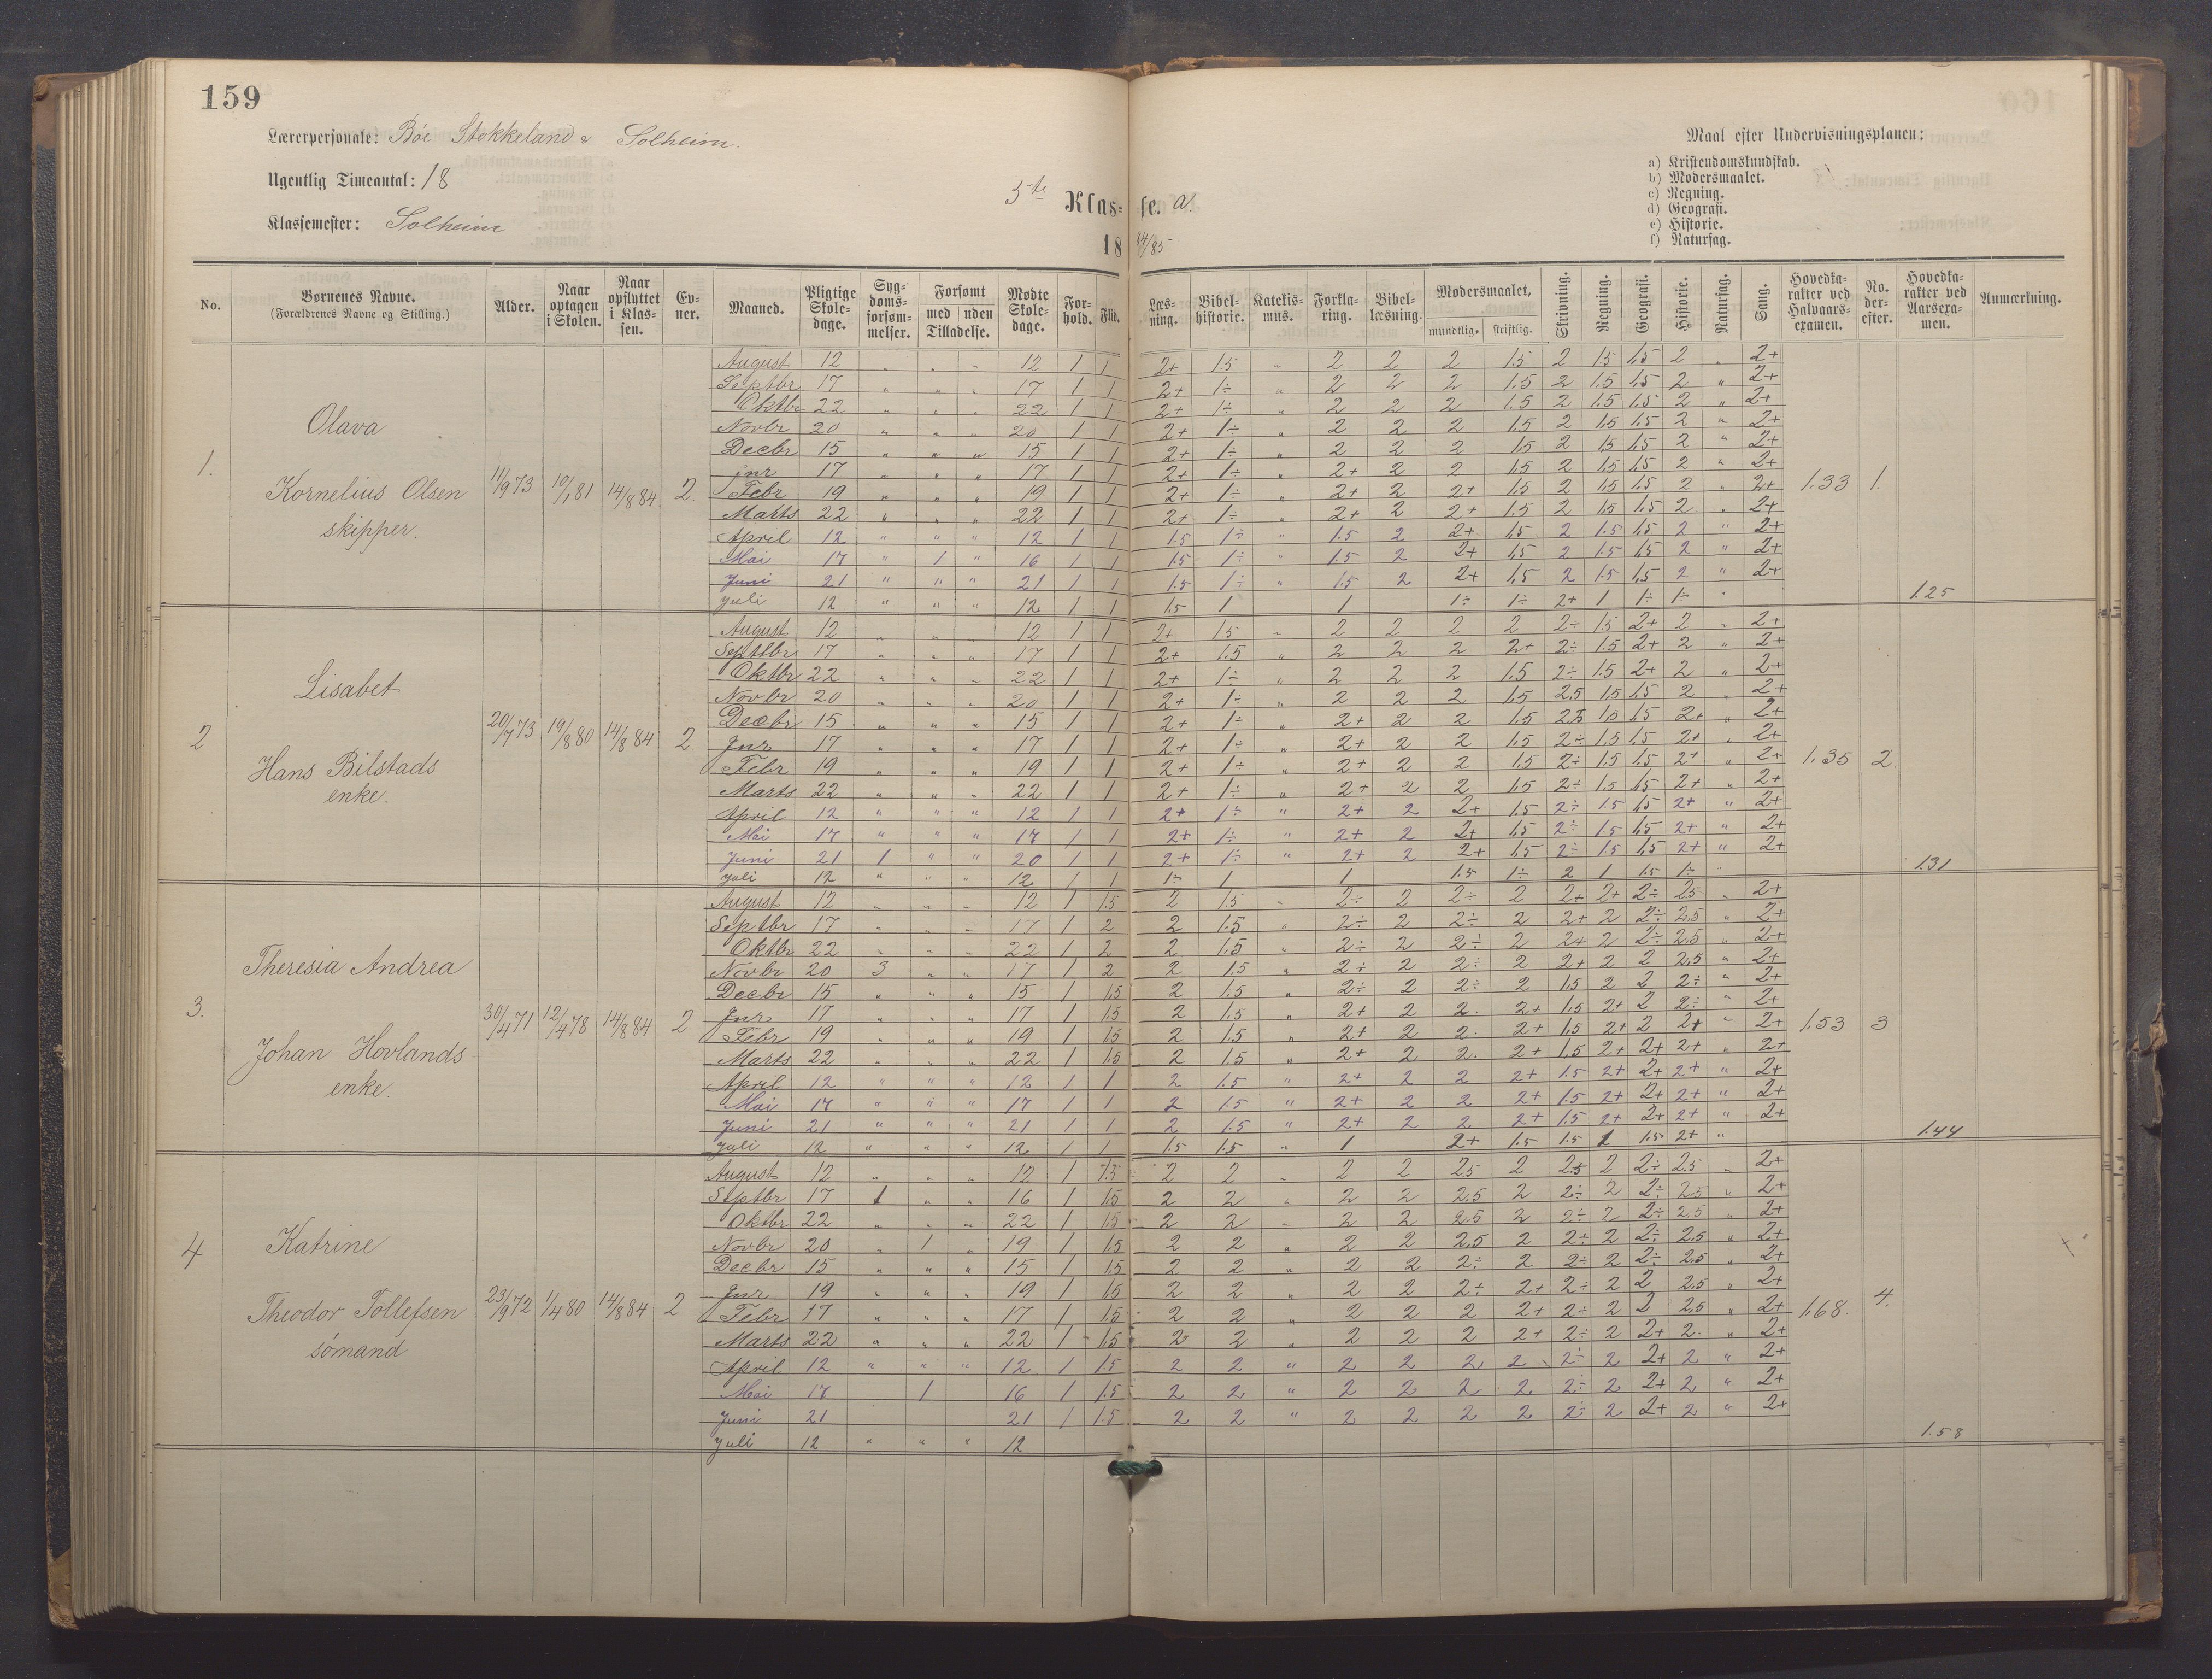 159
Lærerpersonale: Bøe Stokkeland & Solheim.
Ugentlig Timeantal: 18
Klassemester: Solheim
5te Klas- se. a.
18 84/85
Maal efter Undervisningsplanen:
a) Kristendomskundskab.
b) Modersmaalet.
c) Regning.
d) Geografi.
e) Historie.
f) Naturfag.
No. | Børnenes Navne. (Forældrenes Navne og Stilling.) | Alder. | Naar optagen i Skolen. | Naar opflyttet i Klassen. | Evner. | Maaned. | Pligtige Skoledage. | Sygdomsforsømmelser. | Forsømt med | uden Tilladelse. | Mødte Skoledage. | Forhold. | Flid. | Læsning. | Bibelhistorie. | Katekismus. | Forklaring. | Bibellæsning. | Modersmaalet, mundtlig. | skriftlig. | Skrivning. | Regning. | Geografi. | Historie. | Naturfag. | Sang. | Hovedkarakter ved Halvaarsexamen. | No. derefter. | Hovedkarakter ved Aarsexamen. | Anmærkning.
1. Olava
Kornelius Olsen
skipper.
11/9 73 | 10/1 81 | 14/8 84 | 2. | 1.33 | 1. | 1.25
August 12 " " " 12 1 1 2+ 1.5 " 2 2 2 1.5 2 1.5 1.5 2 " 2+
Septbr 17 " " " 17 1 1 2+ 1÷ " 2 2 2 1.5 2 1.5 1.5 2 " 2+
Oktbr 22 " " " 22 1 1 2+ 1÷ " 2 2 2 1.5 2 1.5 1.5 2 " 2+
Novbr 20 " " " 20 1 1 2+ 1÷ " 2 2 2 1.5 2 1.5 1.5 2 " 2+
Decbr 15 " " " 15 1 1 2+ 1÷ " 2 2 2 1.5 2 1.5 1.5 2 " 2+
Jnr 17 " " " 17 1 1 2+ 1÷ " 2+ 2 2 1.5 2 1.5 1.5 2 " 2+
Febr 19 " " " 19 1 1 2+ 1÷ " 2+ 2 2+ 1.5 2 1.5 1.5 2 " 2+
Marts 22 " " " 22 1 1 2+ 1÷ " 2+ 2 2+ 1.5 2 1.5 1.5 2 " 2+
April 12 " " " 12 1 1 1.5 1÷ " 1.5 2 2+ 1.5 2 1.5 1.5 2 " 2+
Mai 17 " 1 " 16 1 1 1.5 1÷ " 1.5 2 2+ 1.5 2 1.5 1.5 2 " 2+
Juni 21 " " " 21 1 1 1.5 1÷ " 1.5 2 2+ 1.5 2 1.5 1.5 2 " 2+
Juli 12 " " " 12 1 1 1.5 1 1 1÷ 1÷ 2+ 1 1÷ 1÷ "
2 Lisabet
Hans Bilstads
enke.
20/7 73 | 19/8 80 | 14/8 84 | 2 | 1.35 | 2. | 1.31
August 12 " " " 12 1 1 2+ 1.5 " 2 2 2 2 2÷ 1.5 2+ 2 " 2+
Septbr 17 " " " 17 1 1 2+ 1.5 " 2 2 2 2+ 2÷ 1.5 2+ 2 " 2+
Oktbr 22 " " " 22 1 1 2+ 1÷ " 2 2 2 1.5 2÷ 1.5 2+ 2 " 2+
Novbr 20 " " " 20 1 1 2+ 1÷ " 2 2 2 1.5 2.5 1.5 1.5 2 " 2+
Decbr 15 " " " 15 1 1 2+ 1÷ " 2+ 2 2 1.5 2.5 1.5 1.5 2+ " 2+
Jnr 17 " " " 17 1 1 2+ 1÷ " 2+ 2 2 1.5 2÷ 1.5 1.5 2+ " 2+
Febr 19 " " " 19 1 1 2+ 1÷ " 2+ 2 2 1.5 2÷ 1.5 1.5 2+ " 2+
Marts 22 " " " 22 1 1 2+ 1÷ " 2+ 2 2 1.5 2÷ 1.5 1.5 2+ " 2+
April 12 " " " 12 1 1 2+ 1÷ " 2+ 2 2+ 1.5 2÷ 1.5 1.5 2+ " 2+
Mai 17 " " " 17 1 1 2+ 1÷ " 2+ 2 2+ 1.5 2÷ 1.5 1.5 2+ " 2+
Juni 21 1 " " 20 1 1 2+ 1÷ " 2+ 2 2+ 1.5 2÷ 1.5 1.5 2+ " 2+
Juli 12 " " " 12 1 1 1÷ 1 1 1.5 1÷ 2 1 1.5 1÷ "
3. Theresia Andrea
Johan Hovlands
enke.
30/4 71 | 12/4 78 | 14/8 84 | 2 | 1.53 | 3 | 1.44
August 12 " " " 12 1 1.5 2 1.5 " 2÷ 2 2÷ 2 2+ 2+ 2÷ 2.5 " 2+
Septbr 17 " " " 17 1 2 2 1.5 " 2÷ 2 2÷ 2 2+ 2 2÷ 2.5 " 2+
Oktbr 22 " " " 22 1 2 2 1.5 " 2÷ 2 2÷ 2 2+ 2 2÷ 2.5 " 2+
Novbr 20 3 " " 17 1 2 2 1.5 " 2÷ 2 2÷ 2 2+ 2 2 2.5 " 2+
Decbr 15 " " " 15 1 1.5 2 1.5 " 2÷ 2 2÷ 2 1.5 2 2 2÷ " 2+
Jnr 17 " " " 17 1 1.5 2 1.5 " 2+ 2 2 2+ 1.5 2+ 2 2÷ " 2+
Febr 19 " " " 19 1 1.5 2 1.5 " 2+ 2 2 2+ 1.5 2+ 2 2+ " 2+
Marts 22 " " " 22 1 1.5 2 1.5 " 2+ 2 2 2+ 1.5 2+ 2+ 2+ " 2+
April 12 " " " 12 1 1 2 1.5 " 2+ 2 2 2+ 1.5 2+ 2+ 2+ " 2+
Mai 17 " " " 17 1 1 2 1.5 " 2+ 2 2 2+ 1.5 2+ 2+ 2+ " 2+
Juni 21 " " " 21 1 1 2 1.5 " 2+ 2 2 2+ 1.5 2+ 2+ 2+ " 2+
Juli 12 " " " 12 1 1 1.5 1.5 " 1 2+ 1.5 1.5 1 1.5 2+ "
4 Katrine
Theodor Tollefsen
sømand
23/9 72 | 1/4 80 | 14/8 84 | 2 | 1.68. | 4. | 1.58
August 12 " " " 12 1 1.5 2 2 " 2 2 2.5 2 2.5 2 2÷ 2.5 " 2+
Septbr 17 1 " " 16 1 1.5 2 2 " 2 2 2.5 2 2÷ 2 2÷ 2.5 " 2+
Oktbr 22 " " " 22 1 1.5 2 2 " 2 2 2.5 2 2÷ 2 2÷ 2.5 " 2+
Novbr 20 " 1 " 19 1 1.5 2 2 " 2 2 2.5 2 2÷ 2 2÷ 2.5 " 2+
Decbr 15 " " " 15 1 1.5 2 2 " 2 2 2÷ 2 2÷ 2 2÷ 2.5 " 2+
Jnr 19 " " " 19 1 1.5 2 2 " 2 2 2÷ 2+ 2÷ 2 2 2.5 " 2+
Febr 17 " " " 17 1 1.5 2 2 " 2 2 2 2+ 2÷ 2 2 2.5 " 2+
Marts 22 " " " 22 1 1.5 2 2 " 2 2 2 2+ 2÷ 2 2+ 2 " 2+
April 12 " " " 12 1 1.5 2 2 " 2 2 2 2 2÷ 2 2+ 2 " 2+
Mai 17 1 16 1 1.5 2 2 " 2 2 2 2 2÷ 2 2+ 2 " 2+
Juni 21 21 1 1.5 2 2 " 2 2 2 2 2÷ 2 2+ 2 " 2+
Juli 12 " " " 12